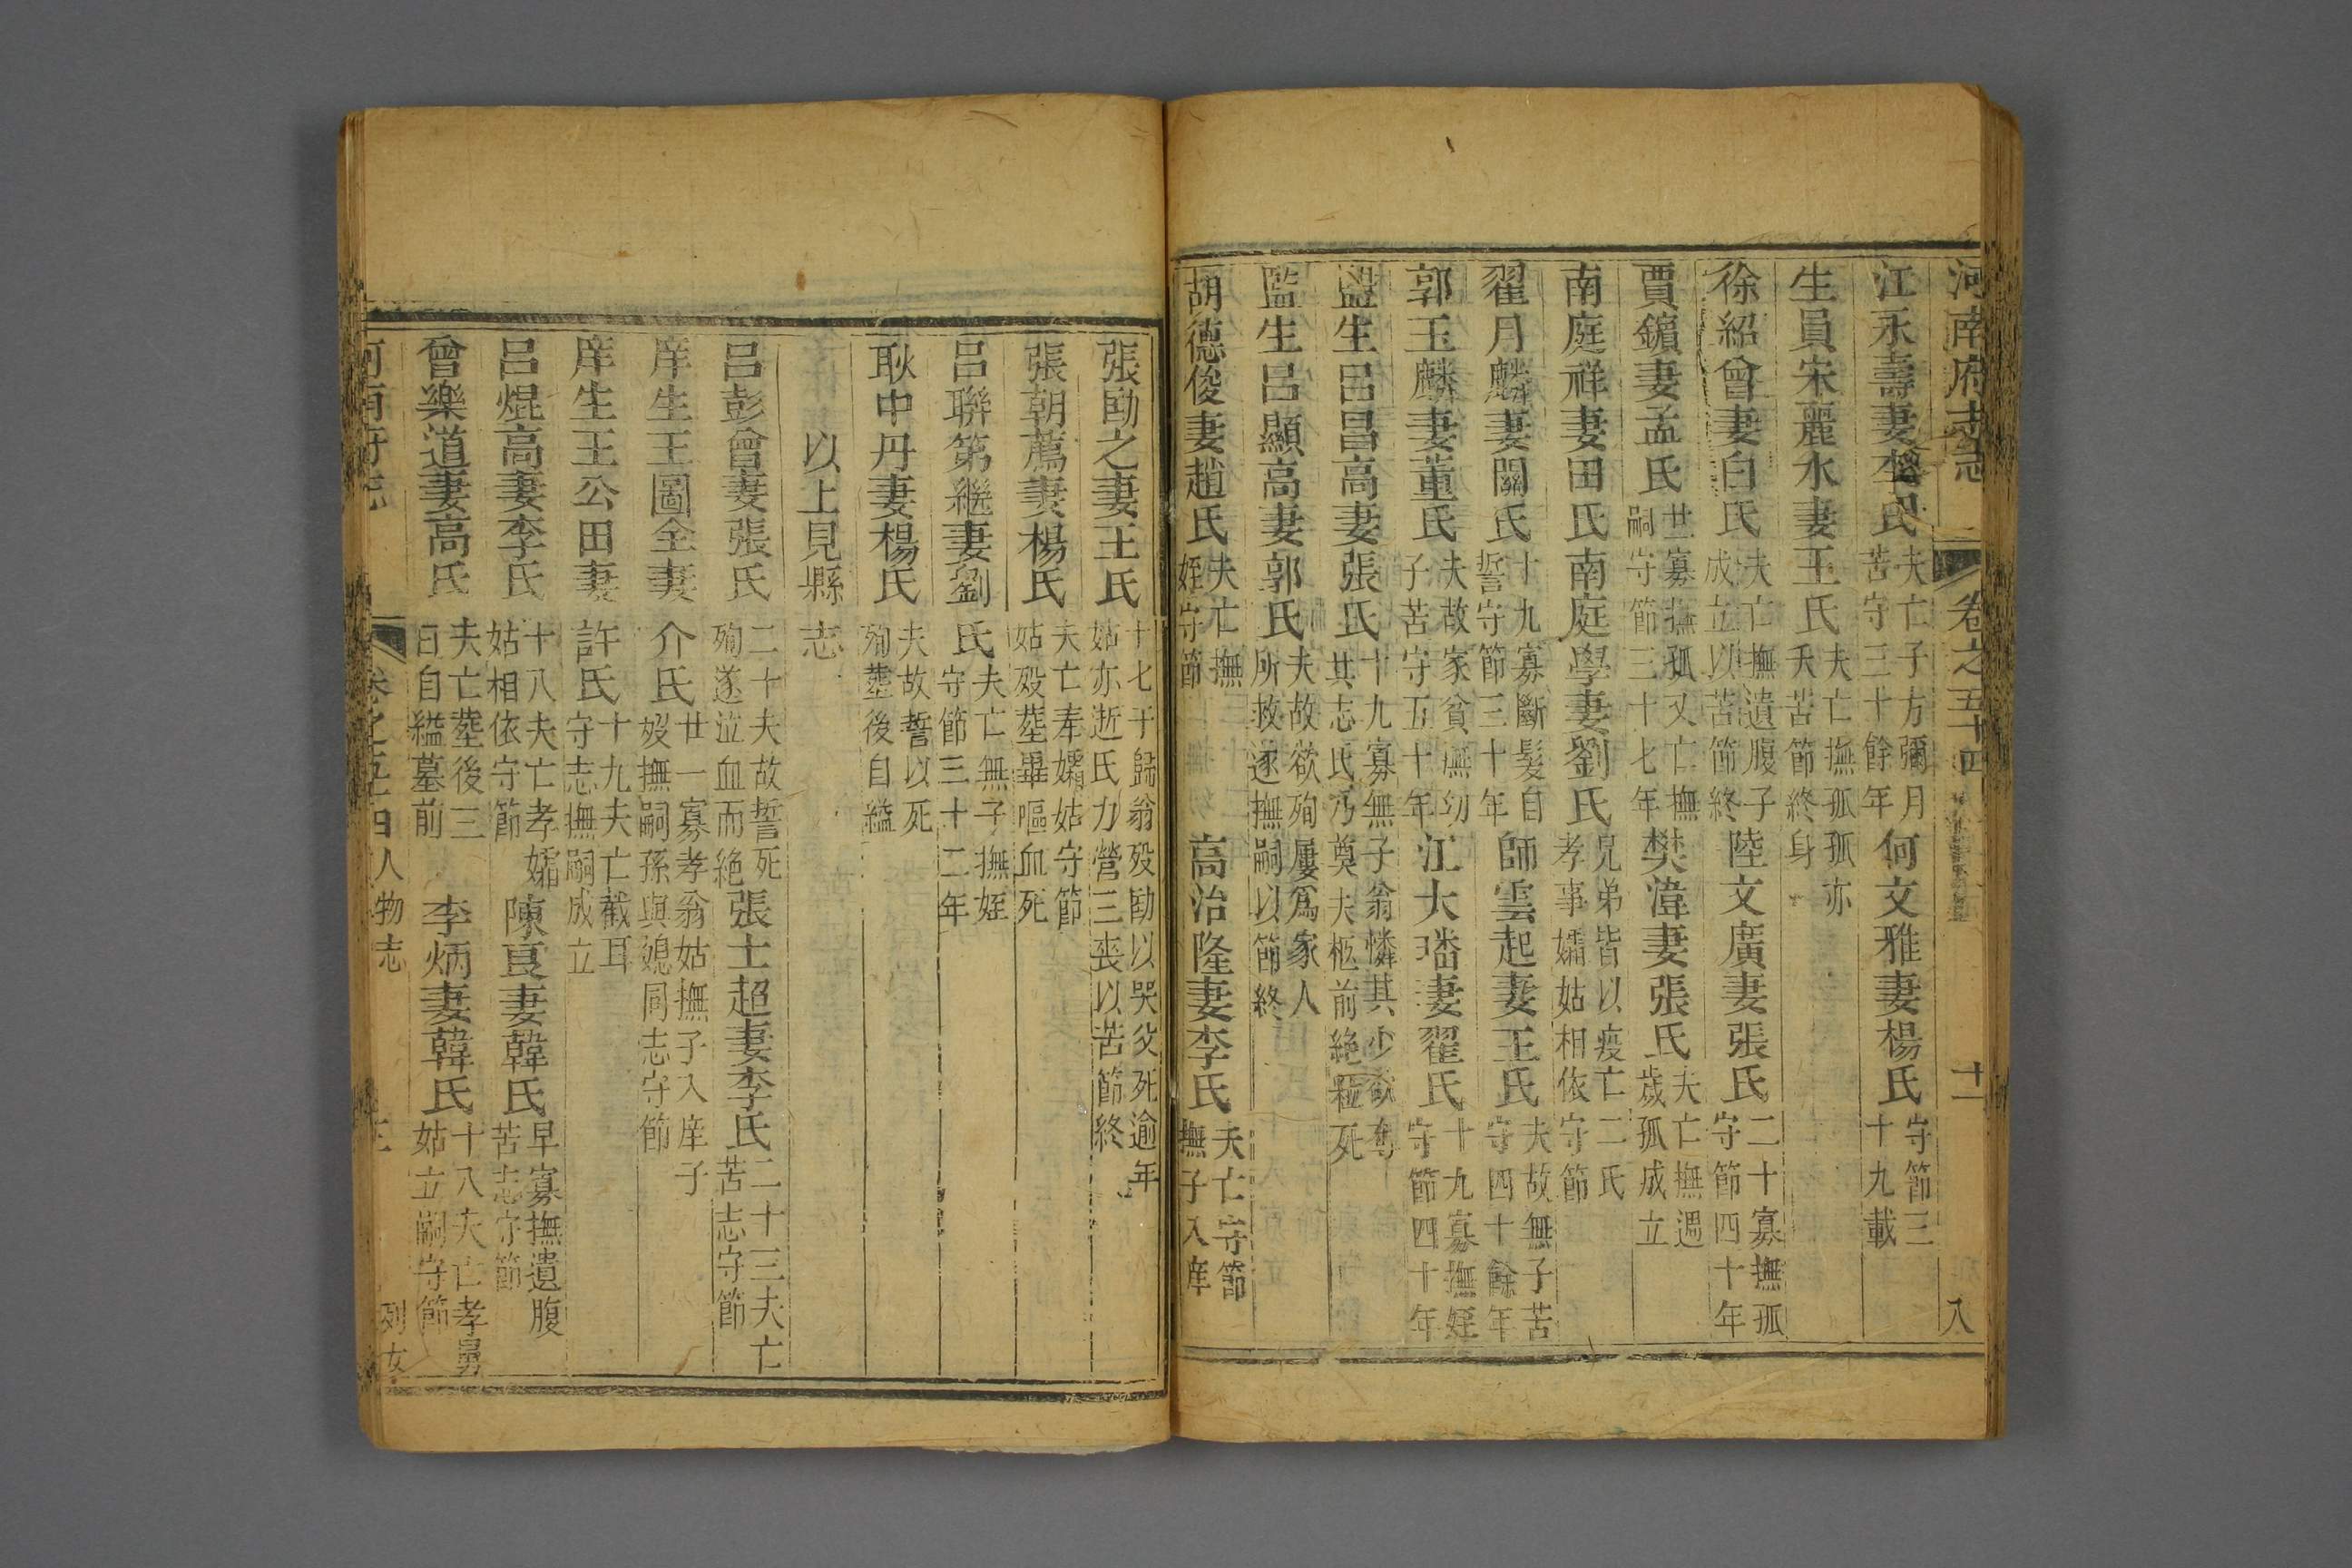 河南府志 卷之五十四 十一 八
江永壽妻李氏 夫亡子方彌月苦守三十餘年 何文雅妻楊氏 守節三十九載
生員宋麗水妻王氏 夫亡撫孤孤亦夭苦節終身
徐紹曾妻白氏 夫亡撫遺腹子成立以苦節終 陸文廣妻張氏 二十寡撫孤守節四十年
賈鑌妻孟氏 廿二寡撫孤又亡撫嗣守節三十七年 樊湋妻張氏 夫亡撫週歲孤成立
南庭祥妻田氏南庭學妻劉氏 兄弟皆以疫亡二氏孝事孀姑相依守節
翟月麟妻關氏 十九寡斷髮自誓守節三十年 師雲起妻王氏 夫故無子苦守四十餘年
郭玉麟妻董氏 夫故家貧撫幼子苦守五十年 江大璠妻翟氏 十九寡撫姪守節四十年
監生呂昌高妻張氏 十九寡無子翁憐其少欲奪其志氏乃奠夫柩前絶粒死
監生呂顯高妻郭氏 夫故欲殉屢爲家人所救遂撫嗣以節終
胡德俊妻趙氏 夫亡撫姪守節 高治隆妻李氏 夫亡守節撫子入庠
張勛之妻王氏 十七于歸翁歿勛以哭父死逾年姑亦逝氏力營三喪以苦節終
張朝薦妻楊氏 夫亡奉孀姑守節姑歿塟畢嘔血死
呂聯第繼妻劉氏 夫亡無子撫姪守節三十二年
耿中丹妻楊氏 夫故誓以死殉塟後自縊
以上見縣志
呂彭曾妻張氏 二十夫故誓死殉遂泣血而絕 張士超妻李氏 二十三夫亡苦志守節
庠生王圖全妻介氏 廿一寡孝翁姑撫子入庠子歿撫嗣孫與媳同志守節
庠生王公田妻許氏 十九夫亡截耳守志撫嗣成立
呂焜高妻李氏 十八夫亡孝孀姑相依守節 陳亘妻韓氏 早寡撫遺腹苦志守節
曾樂道妻高氏 夫亡塟後三日自縊墓前 李炳妻韓氏 十八夫亡孝舅姑立嗣守節
河南府志 卷之五十四人物志 列女